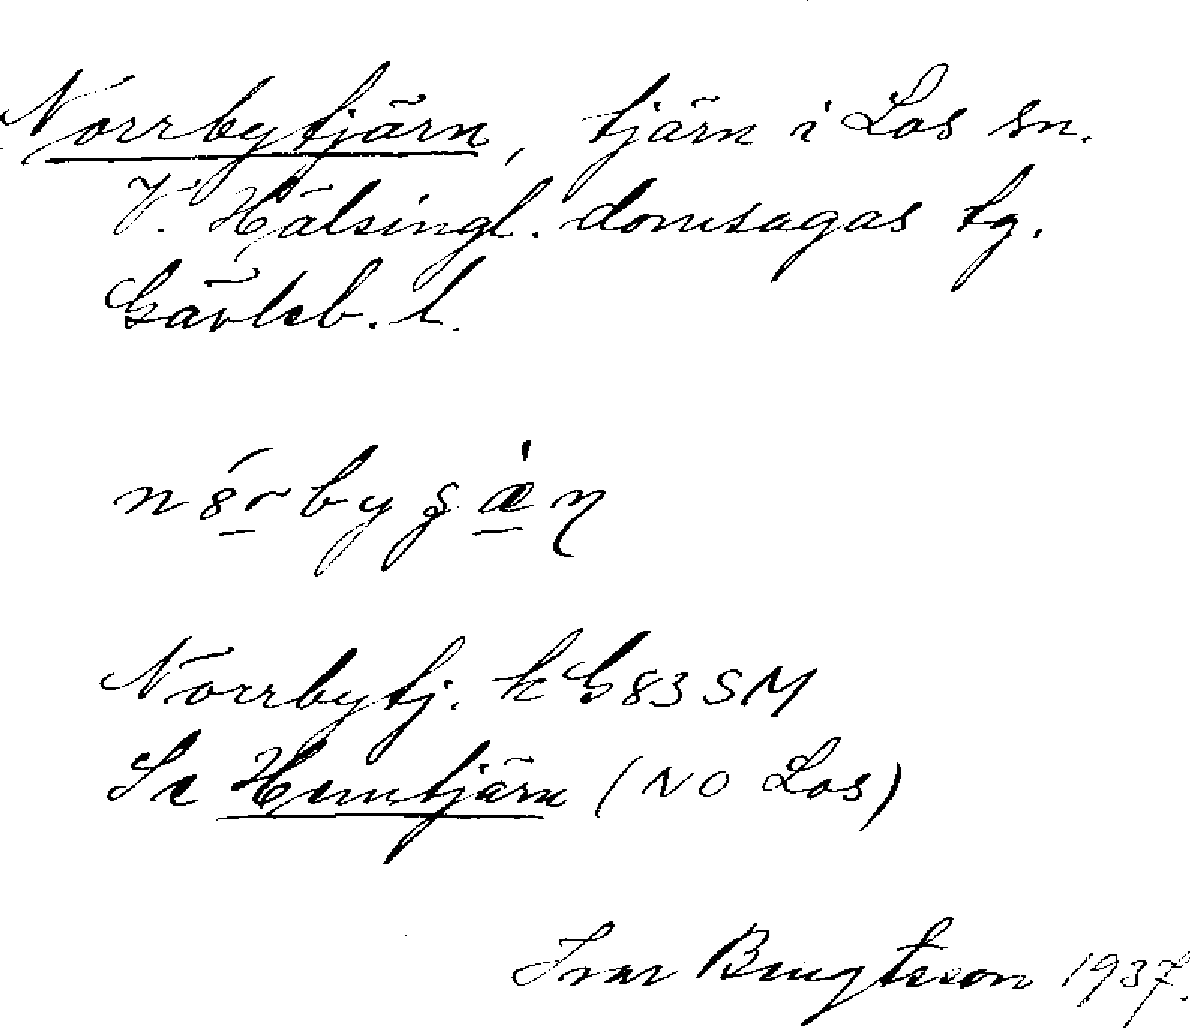 Norrbytjärn, tjärn i Los sn.
V. Hälsingl. domsagas tg.
Gävleb. l.
Norrbytj. k G 83 SM
Se Hemtjärn (NO Los)
Ivar Bengtsson 1937.